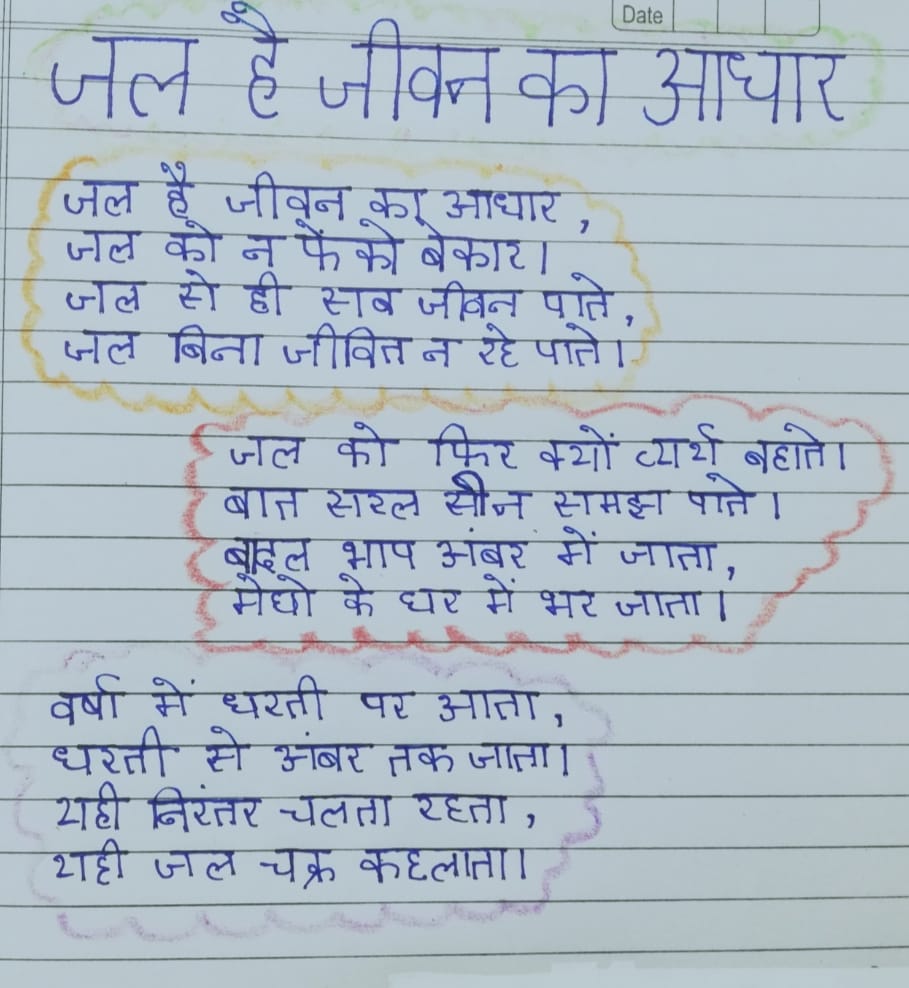 Date
जल है जीवन का आधार
जल है जीवन का आधार,
जल को न फेंको बेकार।
जल से ही सब जीवन पाते,
जल बिना जीवित न रहे पाते।
जल को फिर क्यों व्यर्थ बहाते।
बात सरल सी न समझ पाते।
बादल भाप अंबर में जाता,
मेघो के घर में भर जाता।
वर्षा में धरती पर आता,
धरती से अंबर तक जाता।
यही निरंतर चलता रहता,
यही जल चक्र कहलाता।